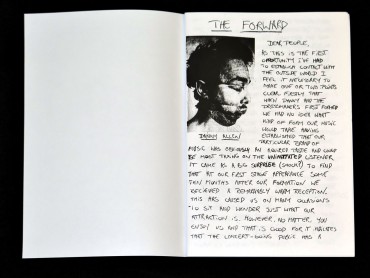 THE FORWARD
DEAR PEOPLE,
AS THIS IS THE FIRST
OPORTUNITY I'VE HAD
TO ESTABLISH CONTACT WITH
THE OUTSIDE WORLD I
FEEL IT NECESSARY TO
MAKE ONE OR TWO POINTS
CLEAR. FIRSTLY THAT
WHEN DANNY AND THE
DRESSMAKERS FIRST FORMED
WE HAD NO IDEA WHAT
KIND OF FORM OUR MUSIC
WOULD TAKE. HAVING
ESTABLISHED THAT OUR
PARTICULAR BRAND OF
DANNY ALLEN
MUSIC WAS OBVIOUSLY AN AQUIRED TASTE AND COULD
BE MOST TAXING ON THE UNINITIATED LISTENER
IT CAME AS A BIG SURPRISE (SHOCK?) TO FIND
THAT AT OUR FIRST STAGE APPEARANCE SOME
TEN MONTHS AFTER OUR FORMATION WE
RECIEVED A REMARKABLY WARM RECEPTION.
THIS HAS CAUSED US ON MANY OCCASIONS
TO SIT AND WONDER JUST WHAT OUR
ATTRACTION IS. HOWEVER, NO MATTER, YOU
ENJOY US AND THAT IS GOOD FOR IT INDICATES
THAT THE CONCERT-GOING PUBLIC HAS A